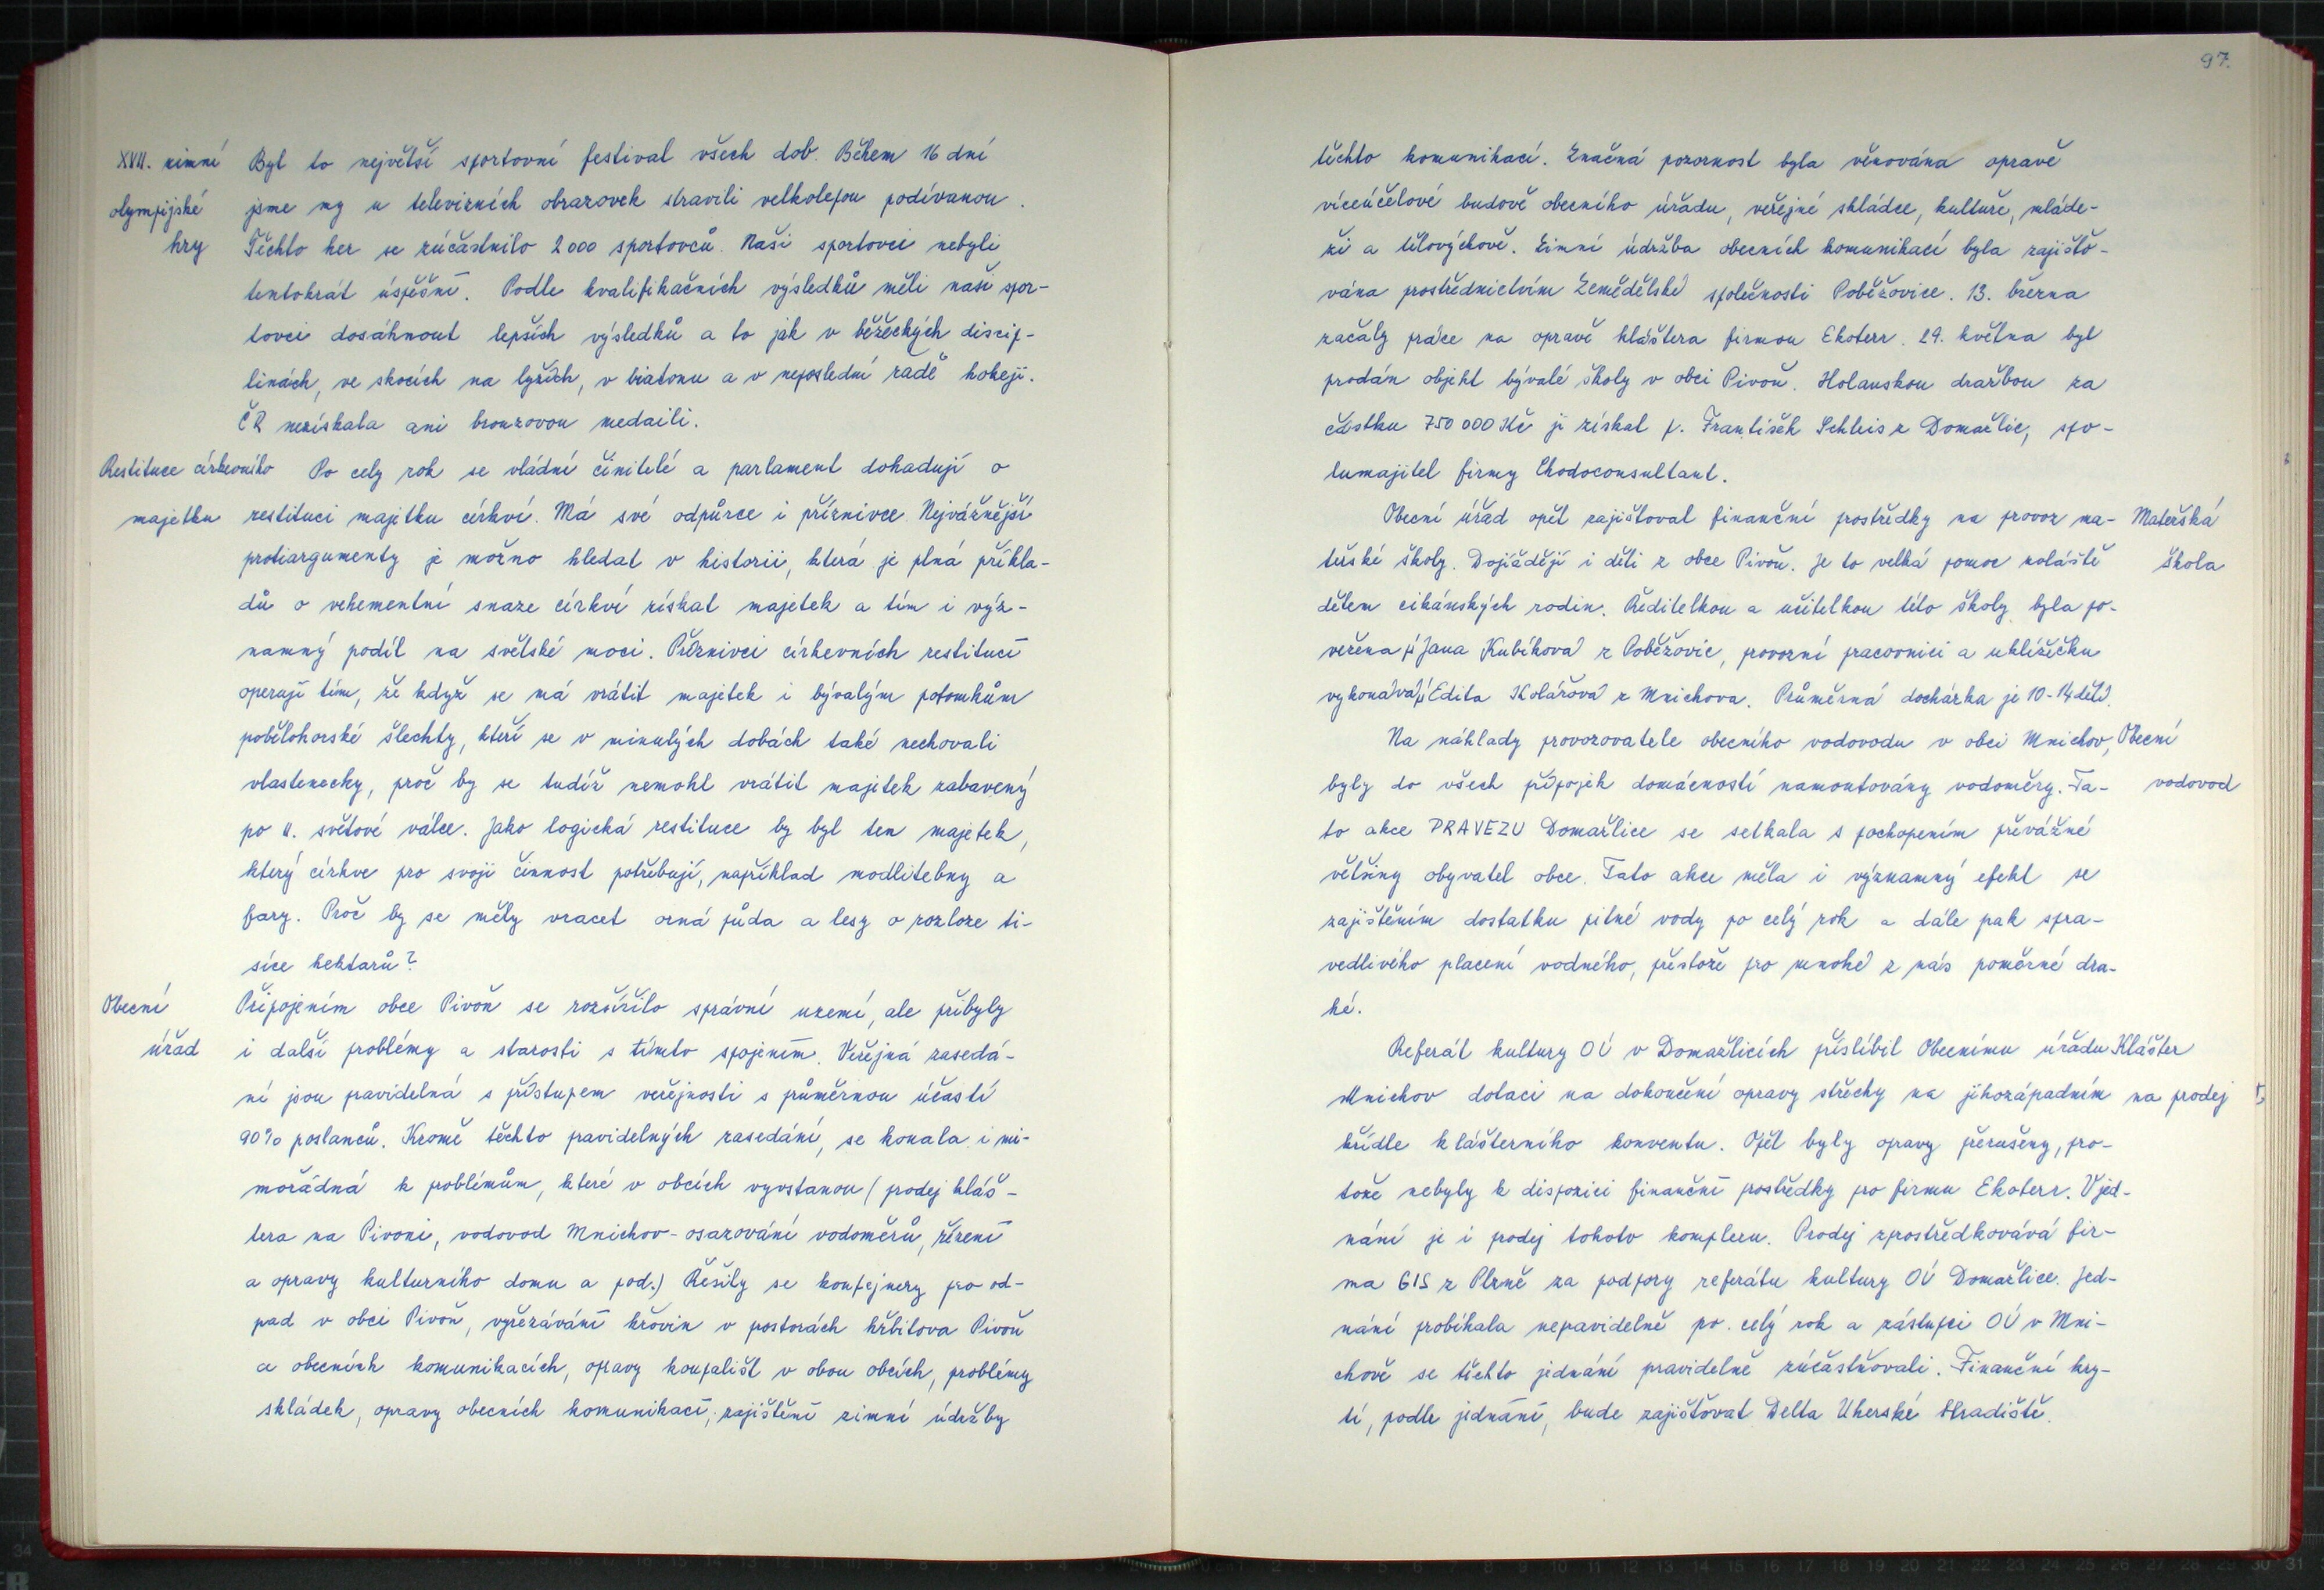 97.
XVII. zimní Byl to největší sportovní festival všech dob. Během 16 dní
olympijské jsme my u televizních obrazovek strávili velkolepou podívanou.
hry Těchto her se zúčastnilo 2000 sportovců. Naši sportovci nebyli
tentokrát úspěšní. Podle kvalifikačních výsledků měli naši spor-
tovci dosáhnout lepších výsledků a to jak v běžeckých discip-
linách, ve skocích na lyžích, v biatonu a v neposlední řadě hokeji.
ČR nezískala ani bronzovou medaili.
Restituce církevního Po celý rok se vládní činitelé a parlament dohadují o
majetku restituci majetku církví. Má své odpůrce i příznivce. Nejvážnější
protiargumenty je možno hledat v historii, která je plná příkla-
dů o vehementní snaze církví získat majetek a tím i výz-
namný podíl na světské moci. Příznivci církevních restitucí
operují tím, že když se má vrátit majetek i bývalým potomkům
pobělohorské šlechty, kteří se v minulých dobách také nechovali
vlastenecky, proč by se tudíž nemohl vrátit majetek zabavený
po II. světové válce. Jako logická restituce by byl ten majetek,
který církve pro svoji činnost potřebují, například modlitebny a
fary. Proč by se měly vracet orná půda a lesy o rozloze ti-
síce hektarů?
Obecní Připojením obce Pivoň se rozšířilo správní uzemí, ale přibyly
úřad i další problémy a starosti s tímto spojením. Veřejná zasedá-
ní jsou pravidelná s přístupem veřejnosti s průměrnou účastí
90% poslanců. Kromě těchto pravidelných zasedání, se konala i mi-
mořádná k problémům, které v obcích vyvstanou (prodej kláš-
tera na Pivoni, vodovod Mnichov - osazování vodoměrů, řízení
a opravy kulturního domu a pod.) Řešily se kontejnery pro od-
pad v obci Pivoň, vyřezávání křovin v prostorách hřbitova Pivoň
a obecních komunikacích, opravy koupališť v obou obcích, problémy
skládek, opravy obecních komunikací, zajištění zimní údržby
těchto komunikací. Značná pozornost byla věnována opravě
víceúčelové budově obecního úřadu, veřejné skládce, kultuře, mláde-
ži a tělovýchově. Zimní údržba obecních komunikací byla zajišťo-
vána prostřednictvím Zemědělské společnosti Poběžovice. 13. března
začaly práce na opravě kláštera firmou Ekoterr. 29. května byl
prodán objekt bývalé školy v obci Pivoň. Holanskou dražbou za
částku 750 000 Kč ji získal p. František Schleis z Domažlic, spo-
lumajitel firmy Chodoconsultant.
Obecní úřad opět zajišťoval finanční prostředky na provoz ma- Mateřská
teřské školy. Dojíždějí i děti z obce Pivoň. Je to velká pomoc zvláště škola
dětem cikánských rodin. Ředitelkou a učitelkou této školy byla po-
věřena pí Jana Kubíková z Poběžovic, provozní pracovnici a uklízečku
vykonává pí Edita Kolářová z Mnichova. Průměrná docházka je 10-14 dětí.
Na náklady provozovatele obecního vodovodu v obci Mnichov, Obecní
byly do všech přípojek domácností namontovány vodoměry. Ta- vodovod
to akce PRAVEZU Domažlice se setkala s pochopením převážné
většiny obyvatel obce. Tato akce měla i významný efekt se
zajištěním dostatku pitné vody po celý rok a dále pak spra-
vedlivého placení vodného, přestože pro mnohé z nás poměrně dra-
hé.
Referát kultury OÚ v Domažlicích přislíbil Obecnímu úřadu Klášter
Mnichov dotaci na dokončení opravy střechy na jihozápadním na prodej
křídle klášterního konventu. Opět byly opravy přerušeny, pro-
tože nebyly k dispozici finanční prostředky pro firmu Ekoterr. V jed-
nání je i prodej tohoto komplexu. Prodej zprostředkovává fir-
ma GIS z Plzně za podpory referátu kultury OÚ Domažlice. Jed-
nání probíhala nepravidelně po celý rok a zástupci OÚ v Mni-
chově se těchto jednání pravidelně zúčastňovali. Finanční kry-
tí, podle jednání, bude zajišťovat Delta Uherské Hradiště.